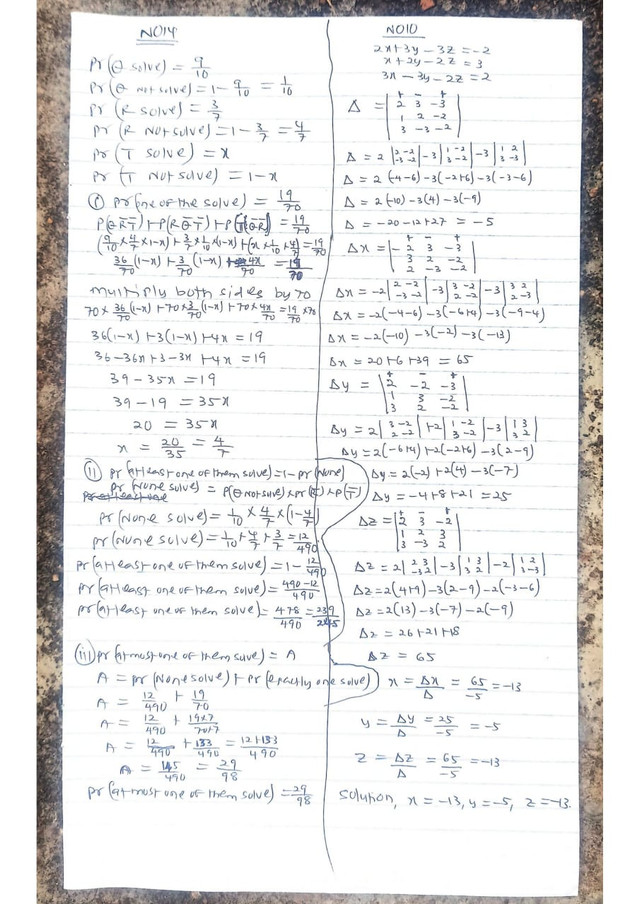 NO14
Pr(Q solve) = 9/10
Pr(Q not solve) = 1 - 9/10 = 1/10
Pr(R solve) = 3/7
Pr(R Not solve) = 1 - 3/7 = 4/7
Pr(T solve) = x
Pr(T Not solve) = 1-x
(i) Pr(one of the solve) = 19/70
P(Q R̅ T̅) + P(R Q̅ T̅) + P(T Q̅ R̅) = 19/70
(9/10 × 4/7 × 1-x) + 3/7 × 1/10 × (1-x) + (x × 1/10 × 4/7) = 19/70
36/70 (1-x) + 3/70 (1-x) + 4x/70 = 19/70
multiply both sides by 70
70 × 36/70 (1-x) + 70 × 3/70 (1-x) + 70 × 4x/70 = 19/70 × 70
36(1-x) + 3(1-x) + 4x = 19
36 - 36x + 3 - 3x + 4x = 19
39 - 35x = 19
39 - 19 = 35x
20 = 35x
x = 20/35 = 4/7
(ii) Pr(at least one of them solve) = 1 - Pr(None)
Pr(None solve) = P(Q not solve) × Pr(R̅) × P(T̅)
Pr(None solve) = 1/10 × 4/7 × (1 - 4/7)
Pr(None solve) = 1/10 + 4/7 + 3/7 = 12/490
Pr(at least one of them solve) = 1 - 12/490
Pr(at least one of them solve) = 490-12/490
Pr(at least one of them solve) = 478/490 = 239/245
(iii) Pr(at most one of them solve) = A
A = Pr(None solve) + Pr(exactly one solve)
A = 12/490 + 19/70
A = 12/490 + 19×7/70×7
A = 12/490 + 133/490 = 12+133/490
A = 145/490 = 29/98
Pr(at most one of them solve) = 29/98
NO10
2x + 3y - 3z = -2
x + 2y - 2z = 3
3x - 3y - 2z = 2
+ - +
Δ = | 2 3 -3 |
1 2 -2
3 -3 -2
Δ = 2 |2 -2 / -3 -2| - 3 |1 -2 / 3 -2| - 3 |1 2 / 3 -3|
Δ = 2(-4-6) - 3(-2+6) - 3(-3-6)
Δ = 2(-10) - 3(4) - 3(-9)
Δ = -20 - 12 + 27 = -5
+ - +
Δx = | -2 3 -3 |
3 2 -2
2 -3 -2
Δx = -2 |2 -2 / -3 -2| - 3 |3 -2 / 2 -2| - 3 |3 2 / 2 -3|
Δx = -2(-4-6) - 3(-6+4) - 3(-9-4)
Δx = -2(-10) - 3(-2) - 3(-13)
Δx = 20 + 6 + 39 = 65
+ - +
Δy = | 2 -2 -3 |
1 3 -2
3 2 -2
Δy = 2 |3 -2 / 2 -2| + 2 |1 -2 / 3 -2| - 3 |1 3 / 3 2|
Δy = 2(-6+4) + 2(-2+6) - 3(2-9)
Δy = 2(-2) + 2(4) - 3(-7)
Δy = -4 + 8 + 21 = 25
+ - +
Δz = | 2 3 -2 |
1 2 3
3 -3 2
Δz = 2 |2 3 / -3 2| - 3 |1 3 / 3 2| - 2 |1 2 / 3 -3|
Δz = 2(4+9) - 3(2-9) - 2(-3-6)
Δz = 2(13) - 3(-7) - 2(-9)
Δz = 26 + 21 + 18
Δz = 65
x = Δx/Δ = 65/-5 = -13
y = Δy/Δ = 25/-5 = -5
z = Δz/Δ = 65/-5 = -13
Solution, x = -13, y = -5, z = -13.